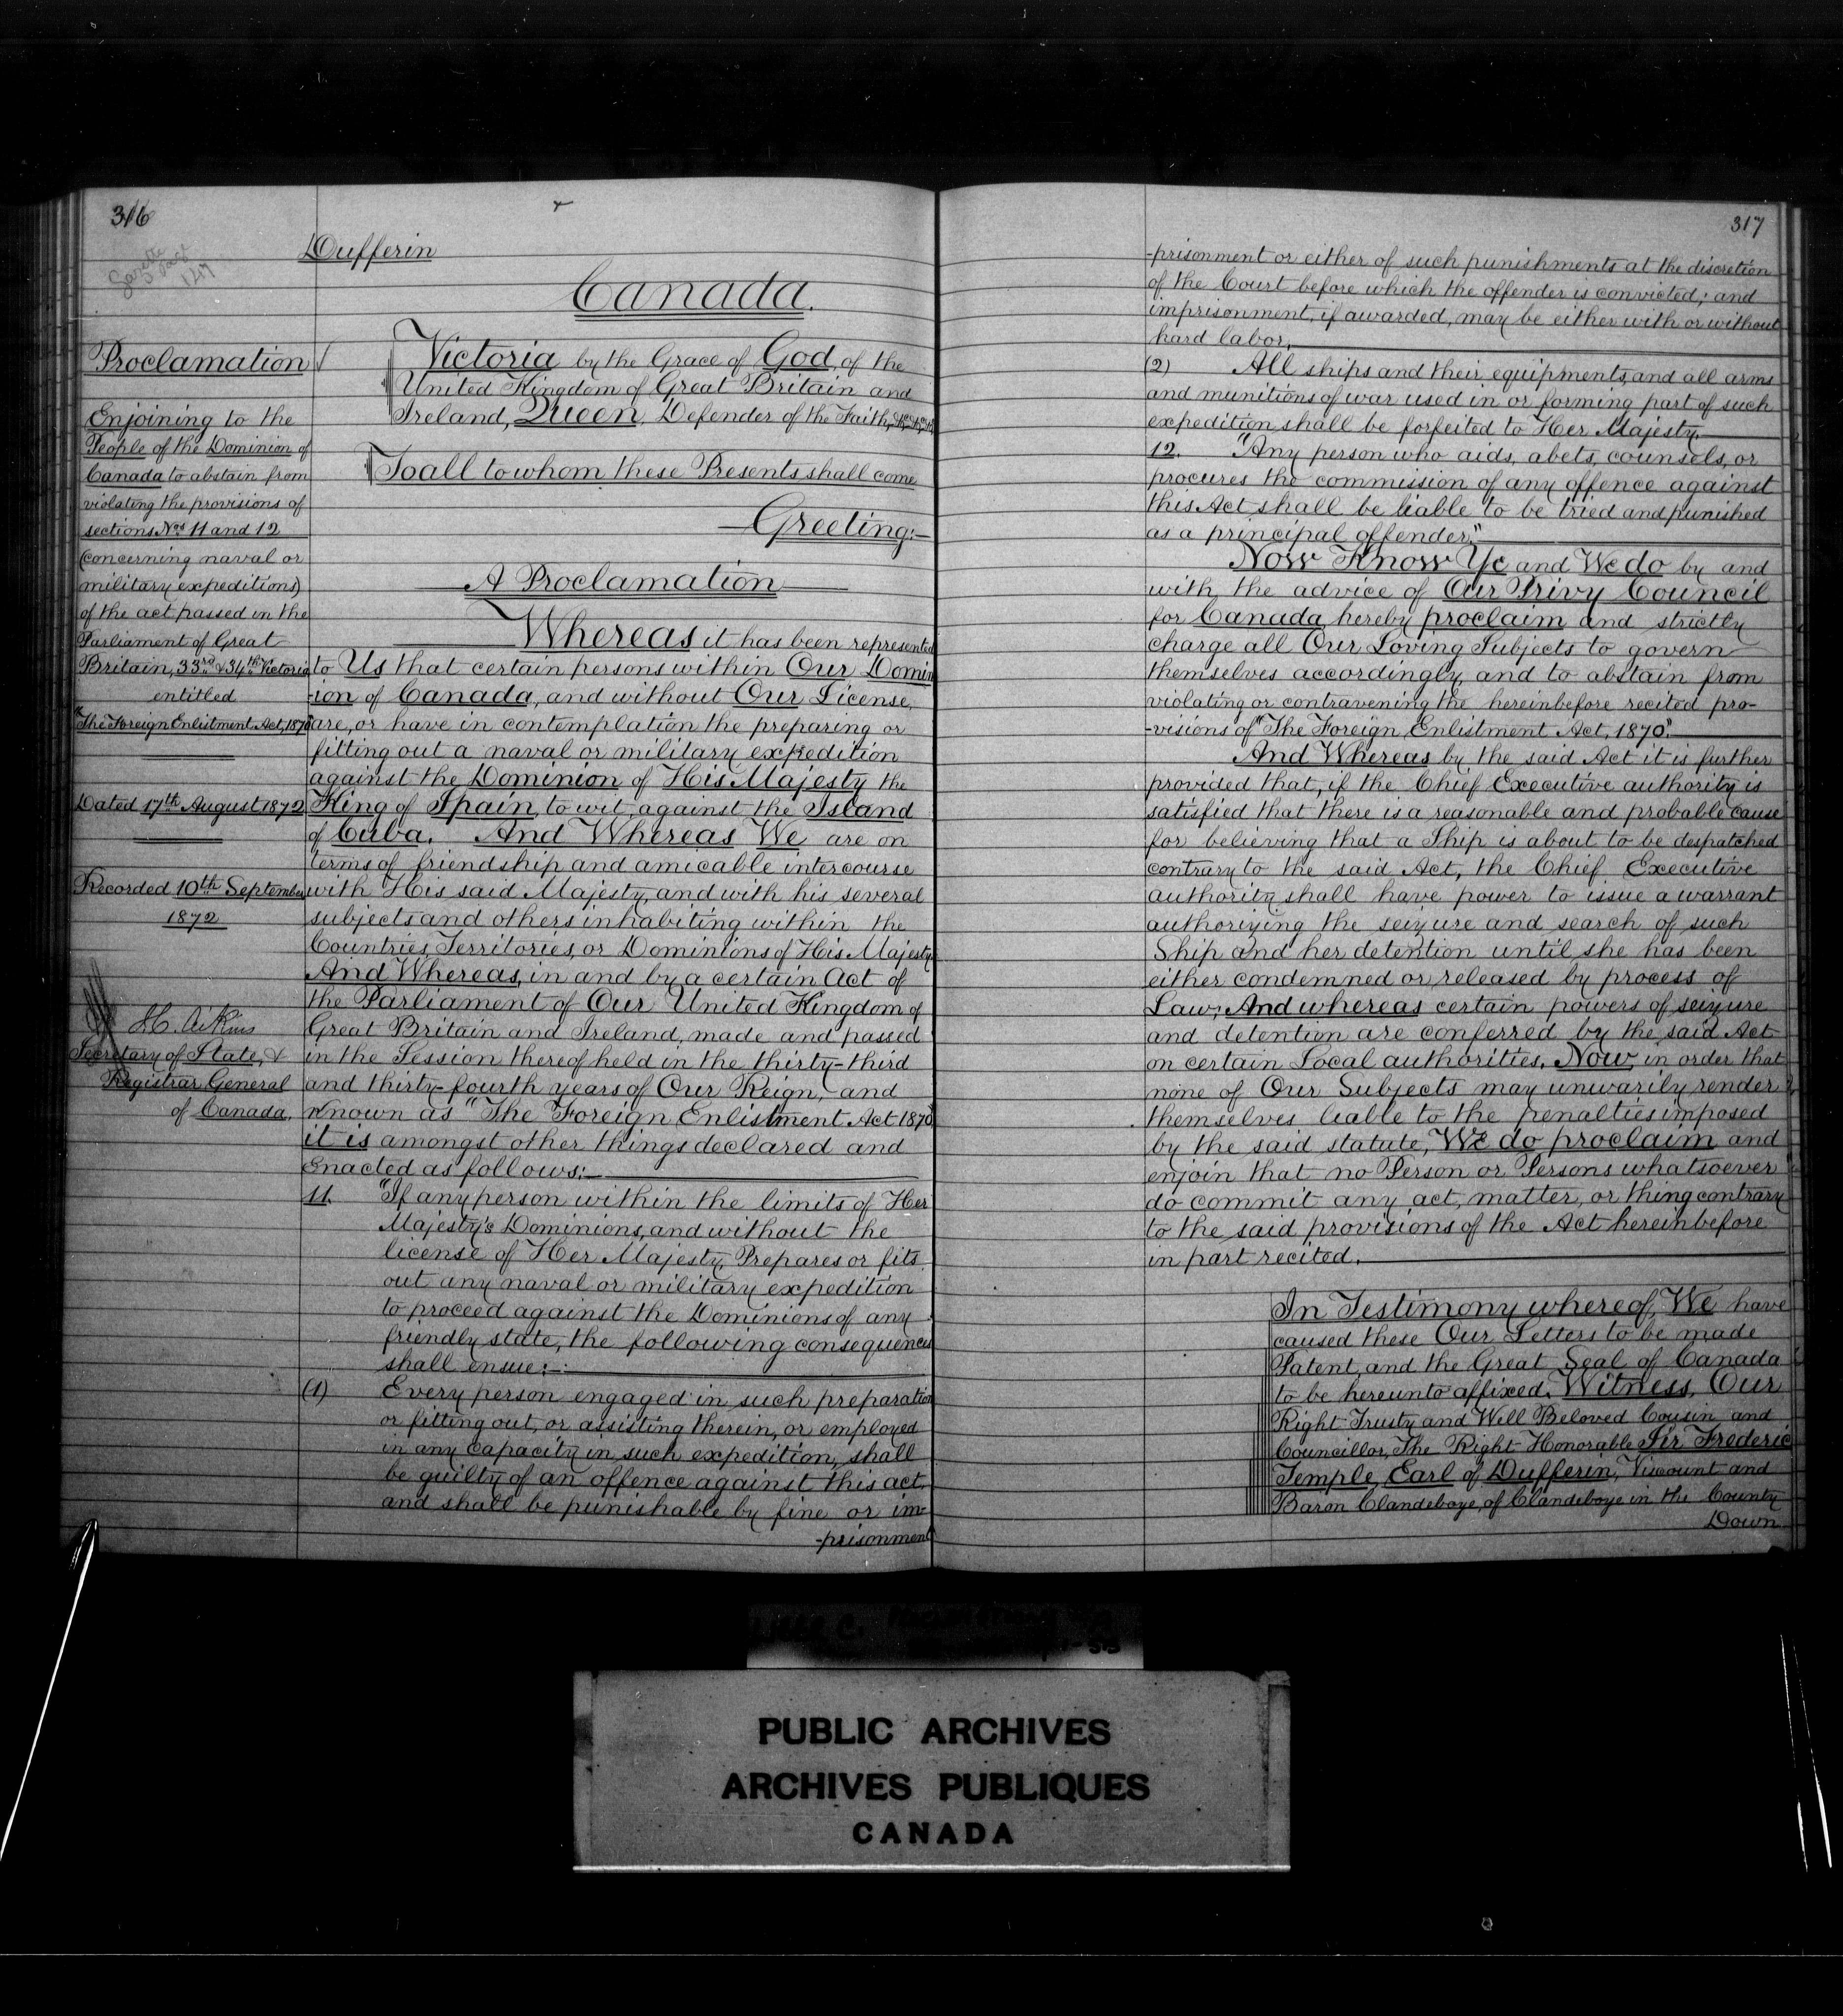 316
Gazette
page
1217
Dufferin
Canada.
Proclamation
Victoria by the Grace of God, of the
United Kingdom of Great Britain and
Ireland, Queen, Defender of the Faith, &c, &c, &c,
To all to whom these Presents shall come
Greeting:—
Enjoining to the
People of the Dominion of
Canada to abstain from
violating the provisions of
sections Nos 11 and 12
(concerning naval or
military expeditions)
of the act passed in the
Parliament of Great
Britain, 33rd & 34th Victoria
entitled
"The Foreign Enlistment Act, 1870"
Dated 17th August 1872
Recorded 10th September
1872
J.C. Aikins
Secretary of State, &
Registrar General
of Canada.
A Proclamation
Whereas it has been represented
to Us that certain persons within Our Domin
-ion of Canada, and without Our License,
are, or have in contemplation the preparing or
fitting out a naval or military expedition
against the Dominion of His Majesty the
King of Spain, to wit, against the Island
of Cuba. And Whereas We are on
terms of friendship and amicable intercourse
with His said Majesty, and with his several
subjects and others inhabiting within the
Countries, Territories, or Dominions of His Majesty.
And Whereas, in and by a certain Act of
the Parliament of Our United Kingdom of
Great Britain and Ireland, made and passed
in the Session thereof held in the thirty-third
and thirty-fourth years of Our Reign, and
known as "The Foreign Enlistment Act 1870"
it is amongst other things declared and
Enacted as follows:—
11. "If any person within the limits of Her
Majesty's Dominions, and without the
license of Her Majesty, Prepares or fits
out any naval or military expedition
to proceed against the Dominions of any
friendly state, the following consequences
shall ensue:—
(1) Every person engaged in such preparation
or fitting out, or assisting therein, or employed
in any capacity in such expedition, shall
be guilty of an offence against this act,
and shall be punishable by fine or im-
-prisonment
317
-prisonment or either of such punishments at the discretion
of the Court before which the offender is convicted; and
imprisonment, if awarded, may be either with or without
hard labor.
(2) All ships and their equipments, and all arms
and munitions of war used in or forming part of such
expedition, shall be forfeited to Her Majesty.
12. "Any person who aids, abets, counsels, or
procures the commission of any offence against
this Act shall be liable to be tried and punished
as a principal offender."
Now Know Ye and We do by and
with the advice of Our Privy Council
for Canada, hereby proclaim and strictly
charge all Our Loving Subjects to govern
themselves accordingly, and to abstain from
violating or contravening the hereinbefore recited pro-
-visions of "The Foreign Enlistment Act, 1870."
And Whereas by the said Act it is further
provided that, if the Chief Executive authority is
satisfied that there is a reasonable and probable cause
for believing that a Ship is about to be despatched
contrary to the said Act, the Chief Executive
authority shall have power to issue a warrant
authorizing the seizure and search of such
Ship and her detention until she has been
either condemned or released by process of
Law; And whereas certain powers of seizure
and detention are conferred by the said Act
on certain Local authorities. Now, in order that
none of Our Subjects may unwarily render
themselves liable to the penalties imposed
by the said statute, We do proclaim and
enjoin that no Person or Persons whatsoever
do commit any act, matter, or thing contrary
to the said provisions of the Act hereinbefore
in part recited.
In Testimony whereof, We have
caused these Our Letters to be made
Patent, and the Great Seal of Canada
to be hereunto affixed. Witness, Our
Right Trusty and Well Beloved Cousin and
Councillor, The Right Honorable Sir Frederic
Temple, Earl of Dufferin, Viscount and
Baron Clandeboye, of Clandeboye in the County
Down
PUBLIC ARCHIVES
ARCHIVES PUBLIQUES
CANADA